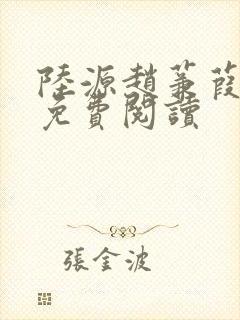 陸源趙蒹葭
免費閱讀
張金波